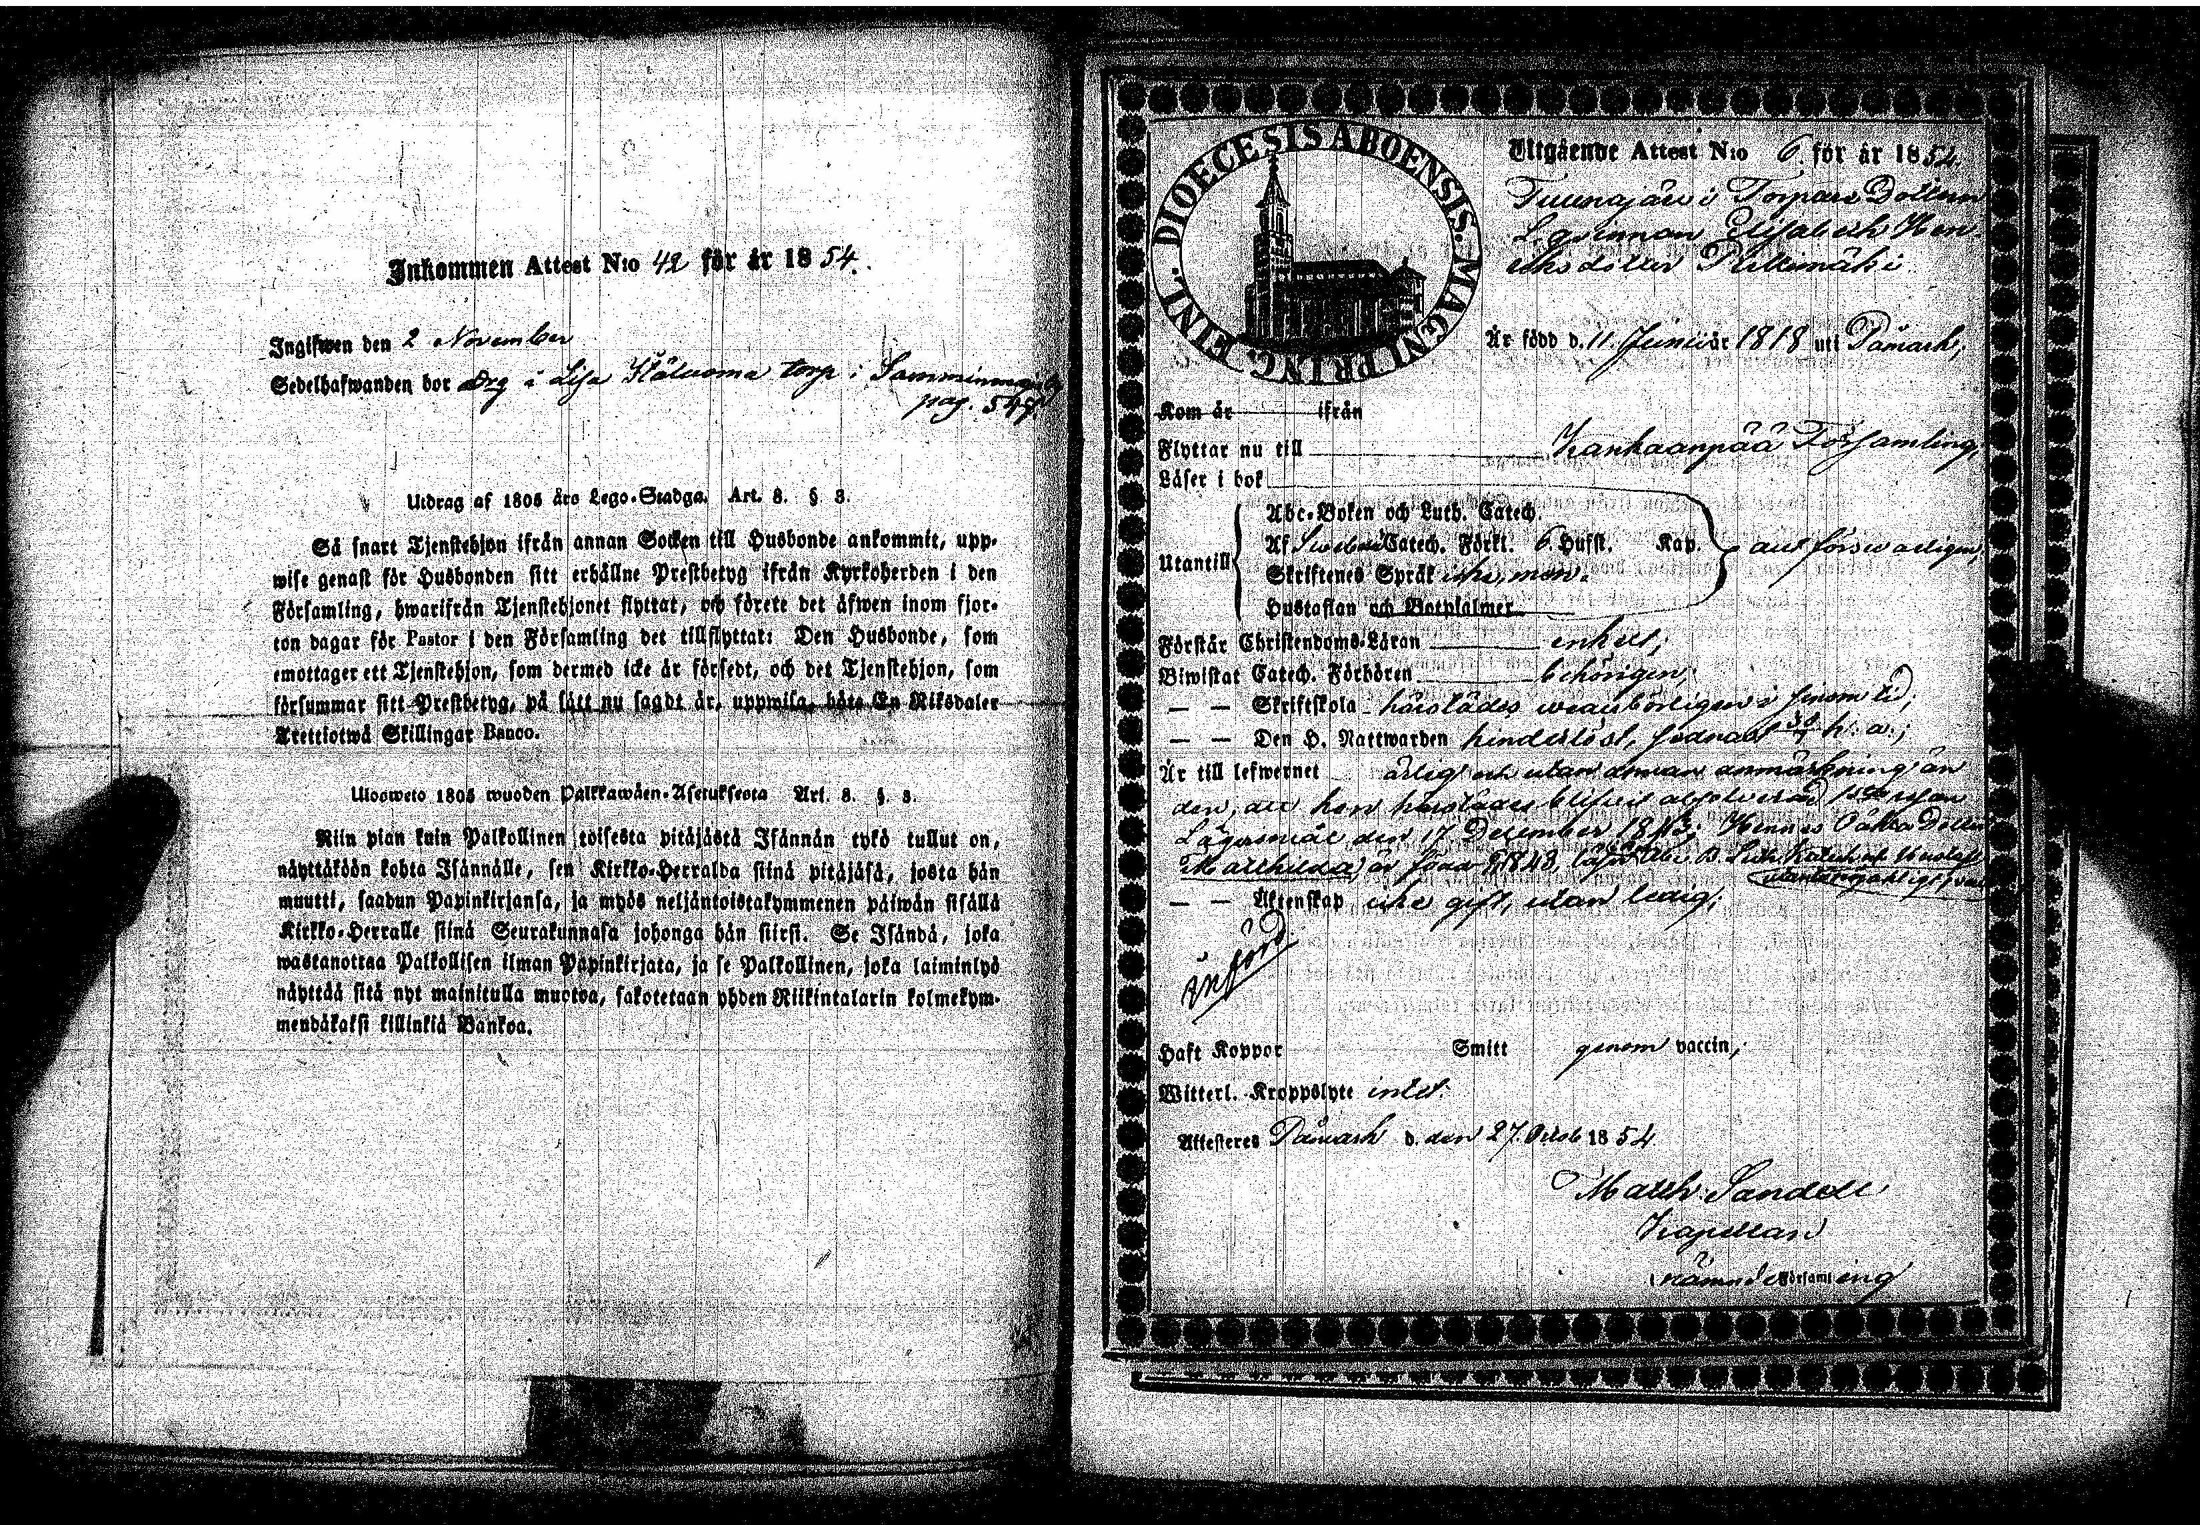 Inkommen Attest N:o 42 för år 1854.
Ingifwen den 2 November
Sedelhafwanden bor å Lisa torp i
pag. 549
Utdrag af 1805 års Lego-Stadga. Art. 8. §. 3.
Så snart Tjenstehjon ifrån annan Socken till Husbonde ankommit, upp-
wise genast för Husbonden sitt erhållne Prestbetyg ifrån Kyrkoherden i den
Församling, hwarifrån Tjenstehjonet flyttat, och förete det äfwen inom fjor-
ton dagar för Pastor i den Församling det tillflyttat: Den Husbonde, som
emottager ett Tjenstehjon, som dermed icke är försedt, och det Tjenstehjon, som
försummar sitt Prestbetyg, på sätt nu sagdt är, uppwisa, böte En Riksdaler
Trettiotwå Skillingar Banco.
Ulosweto 1805 wuoden Palkkawäen-Asetuksesta Art. 8. §. 3.
Niin pian kuin Palkollinen toisesta pitäjästä Isännän tykö tullut on,
näyttäköön kohta Isännälle, sen Kirkko-Herralda siinä pitäjäsä, josta hän
muutti, saadun Papinkirjansa, ja myös neljäntoistakymmenen päiwän sisällä
Kirkko-Herralle siinä Seurakunnasa johonga hän siirsi. Se Isändä, joka
wastanottaa Palkollisen ilman Papinkirjata, ja se Palkollinen, joka laiminlyö
näyttää sitä nyt mainitulla muotoa, sakotetaan yhden Riikintalarin kolmekym-
mendäkaksi killinkiä Bankoa.
DIOECESIS ABOENSIS. MAGNI PRINC. FINL.
Utgående Attest N:o 6. för år 1854.
Tuunajärvi Torpare Dottern
Elisabeth Hen-
riksdotter
Är född d. 11 Junii år 1818 uti Påmark;
Kom år ifrån
Flyttar nu till Kankaanpää Församling,
Läser i bok
Abc-Boken och Luth. Catech.
Utantill Af Svebelii Catech. Förkl. 6. Hufst. Kap. allt försvarligen;
Skriftenes Språk icke, men
Hustaflan och Botpsalmer
Förstår Christendoms-Läran enkelt;
Biwistat Catech. Förhören behörigen;
— — Skriftskola härstädes i sinom tid;
— — Den H. Nattwarden hinderlöst, sednast h: a:;
Är till lefwernet ärlig och utan annan anmärkning än
den, att hon härstädes blifvit
Lägersmål den 17 December 1843; Hennes Oäkta Dotter
Mathilda är född 1843,
— — Äktenskap icke gift, utan ledig;
införd
Haft Koppor Smitt genom vaccin,
Witterl. Kroppslyte intet.
Attesteras Påmark d. den 27. Octob 1854
Matth. Sandell
Kapellan
i nämnde Församling